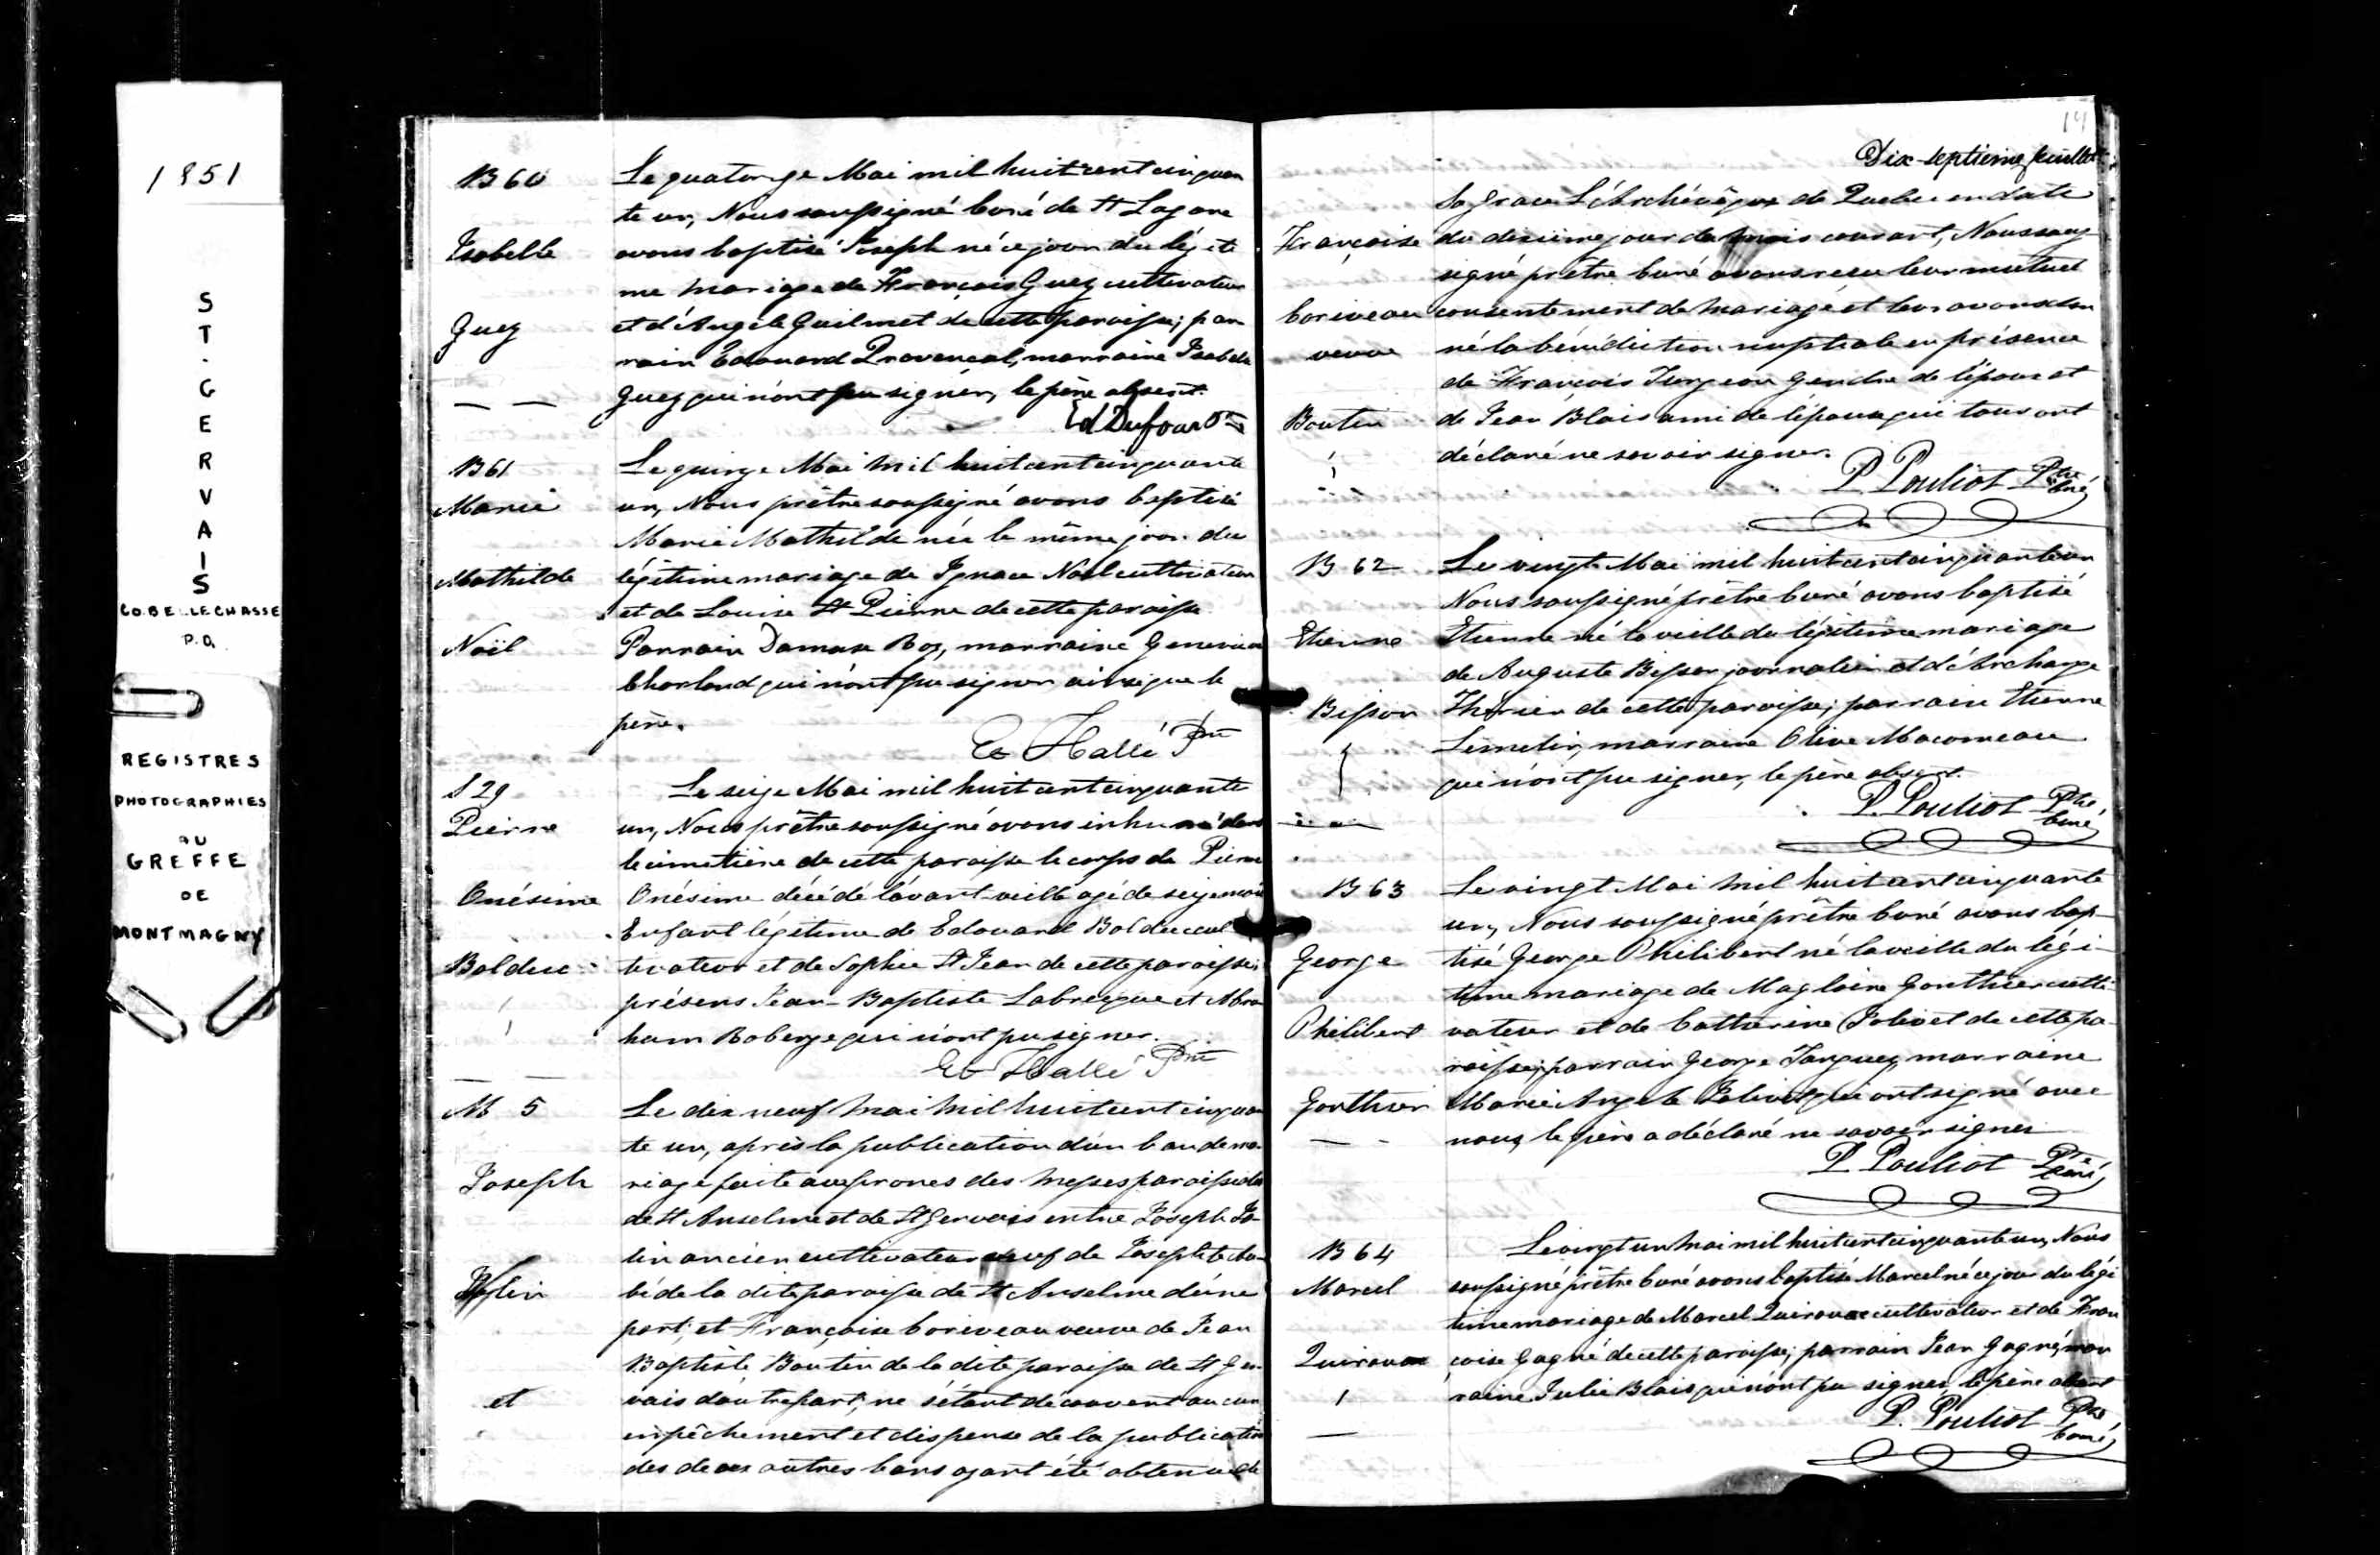 1851
ST. GERVAIS
CO. BELLECHASSE
P.Q.
REGISTRES
PHOTOGRAPHIES
AU
GREFFE
DE
MONTMAGNY
B 60
Isabelle
Guey
Le quatorze Mai mil huit cent cinquan
te un, Nous soussigné Curé de St Lazare
avons baptisé Joseph né ce jour du légiti
me mariage de François Guey cultivateur
et d'Angèle Guilmet de cette paroisse; par
rain Edouard Provençal, marraine Isabelle
Guey qui n'ont pu signer, le père absent.
Ed Dufour Ptre
B 61
Marie
Mathilde
Noël
Le quinze Mai mil huit cent cinquante
un, Nous prêtre soussigné avons baptisé
Marie Mathilde née le même jour du
légitime mariage de Ignace Noël cultivateur
et de Louise St Pierre de cette paroisse
Parrain Damase Roy, marraine Geneviève
Chorland qui n'ont pu signer ainsi que le
père.
Hallé Ptre
S 29
Pierre
Onésime
Bolduc
Le seize Mai mil huit cent cinquante
un, Nous prêtre soussigné avons inhumé dans
le cimetière de cette paroisse le corps de Pierre
Onésime décédé l'avant-veille agé de seize mois
Enfant légitime de Edouard Bolduc cul
tivateur et de Sophie St Jean de cette paroisse;
présens Jean-Baptiste Labrecque et Abra
ham Roberge qui n'ont pu signer.
Hallé Ptre
M 5
Joseph
et
Le dix neuf Mai Mil huit cent cinquan
te un, après la publication d'un ban de ma
riage faite aux prones des Messes paroissiales
de St Anselme et de St Gervais entre Joseph
ancien cultivateur veuf de Josephte
de la dite paroisse de St Anselme d'une
part; et Françoise Coriveau veuve de Jean
Baptiste Boutin de la dite paroisse de St Ger
vais d'autre part, ne s'étant découvert aucun
empêchement et dispense de la publication
des deux autres bans ayant été obtenue de
14
Dix-septième feuillet
Françoise
Coriveau
veuve
Boutin
Sa Grace L'Archévêque de Quebec en date
du dixième jour du mois courant, Nous sous
signé prêtre Curé avons reçu leur mutuel
consentement de mariage et leur avons don
né la bénédiction nuptiale en présence
de François Turgeon Gendre de l'époux et
de Jean Blais ami de l'épouse qui tous ont
déclaré ne savoir signer.
P. Pouliot Ptre
Curé
B 62
Etienne
Bisson
Le vingt Mai mil huit cent cinquante un
Nous soussigné prêtre Curé avons baptisé
Etienne né la veille du légitime mariage
de Auguste Bisson journalier et d'Archange
Thérien de cette paroisse; parrain Etienne
Lemelin, marraine Olive
qui n'ont pu signer, le père absent.
P. Pouliot Ptre
Curé
B 63
George
Philibert
Gonthier
Le vingt Mai Mil huit cent cinquante
un, Nous soussigné prêtre Curé avons bap
tisé George Philibert né la veille du légi
time mariage de Magloire Gonthier culti
vateur et de Catherine Jolivet de cette pa
roisse; parrain George Tanguay, marraine
Marie Angele Jolivet qui ont signé avec
nous, le père a déclaré ne savoir signer
P. Pouliot Ptre
Curé
B 64
Marcel
Quiroux
Le vingt un Mai mil huit cent cinquante un, Nous
soussigné prêtre Curé avons baptisé Marcel né ce jour du légi
time mariage de Marcel Quiroux cultivateur et de Fran
çoise Gagné de cette paroisse; parrain Jean Gagné, mar
raine Julie Blais qui n'ont pu signer, le père absent
P. Pouliot Ptre
Curé